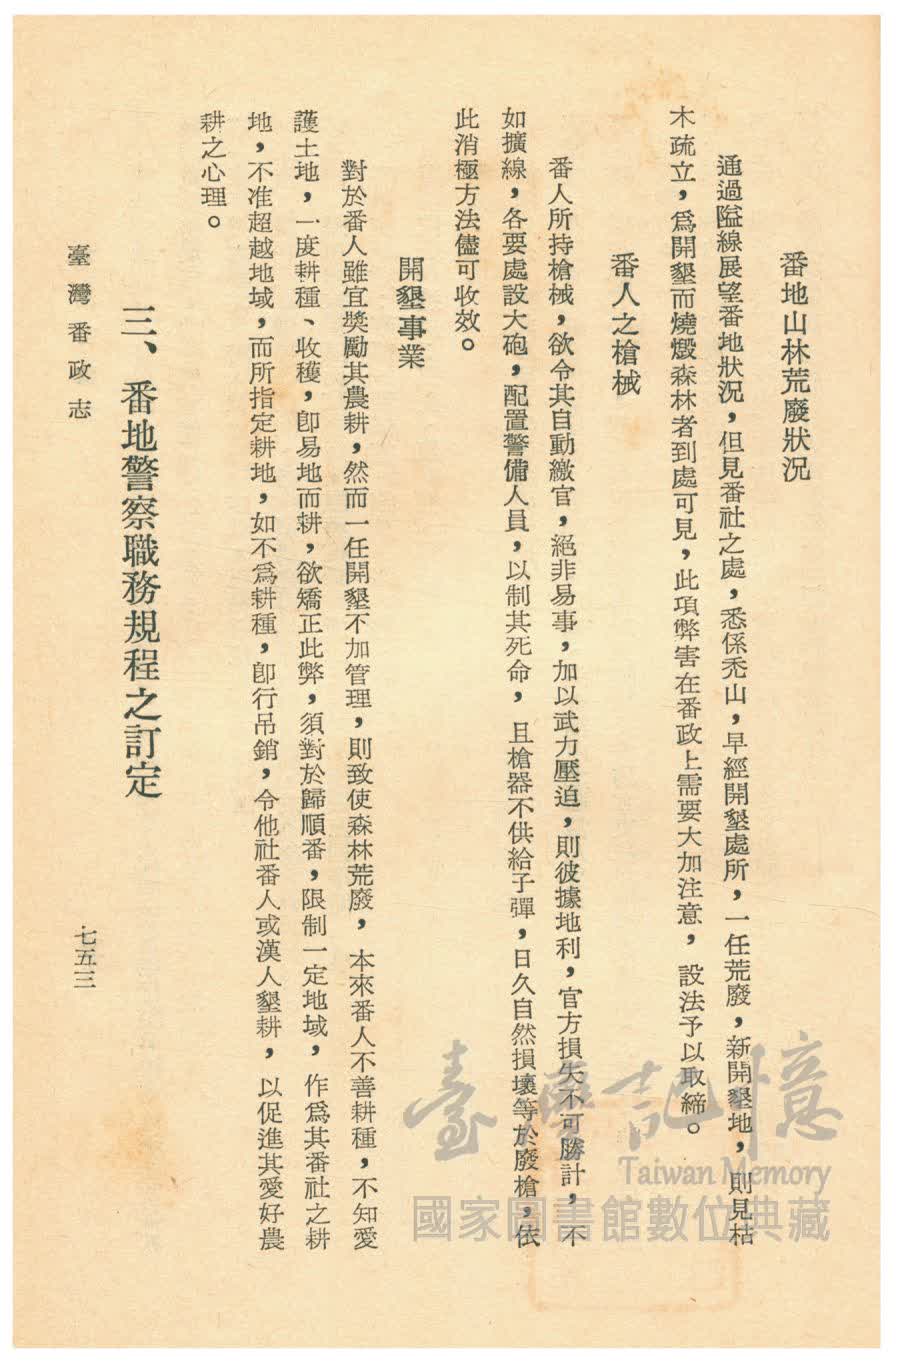 番地山林荒廢狀況
通過隘線展望番地狀況，但見番社之處，悉係禿山，早經開墾處所，一任荒廢，新開墾地，則見枯
木疏立，爲開墾而燒燬森林者到處可見，此項弊害在番政上需要大加注意，設法予以取締。
番人之槍械
番人所持槍械，欲令其自動繳官，絕非易事，加以武力壓迫，則彼據地利，官方損失不可勝計，不
如擴線，各要處設大砲，配置警備人員，以制其死命，且槍器不供給子彈，日久自然損壞等於廢槍，依
此消極方法儘可收效。
開墾事業
對於番人雖宜獎勵其農耕，然而一任開墾不加管理，則致使森林荒廢，本來番人不善耕種，不知愛
護土地，一度耕種、收穫，卽易地而耕，欲矯正此弊，須對於歸順番，限制一定地域，作爲其番社之耕
地，不准超越地域，而所指定耕地，如不爲耕種，卽行吊銷，令他社番人或漢人墾耕，以促進其愛好農
耕之心理。
三、番地警察職務規程之訂定
臺灣番政志
七五三
臺灣記憶
Taiwan Memory
國家圖書館數位典藏